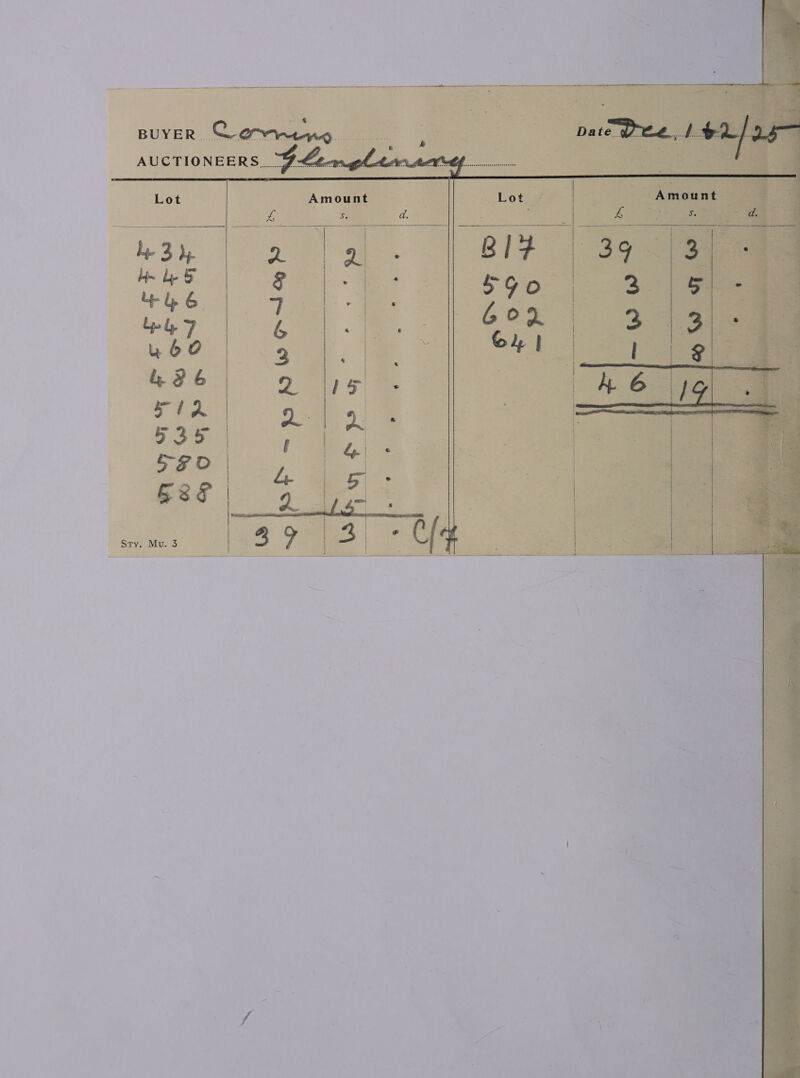 BUYER Corning Date Dec. 1 & 2/25
AUCTIONEERS Glendining
Lot Amount Lot Amount
£ s. d. £ s. d.
434 2 2 · B/F 39 3 ·
445 8 · · 590 3 5 -
446 7 · · 602 3 3 ·
447 6 · · 641 1 8
460 3 · · 46 19 ·
486 2 15 ·
512 2 2 ·
535 1 4 ·
580 4 5 ·
588 2 15 ·
39 3 · C/f
STY. MU. 3